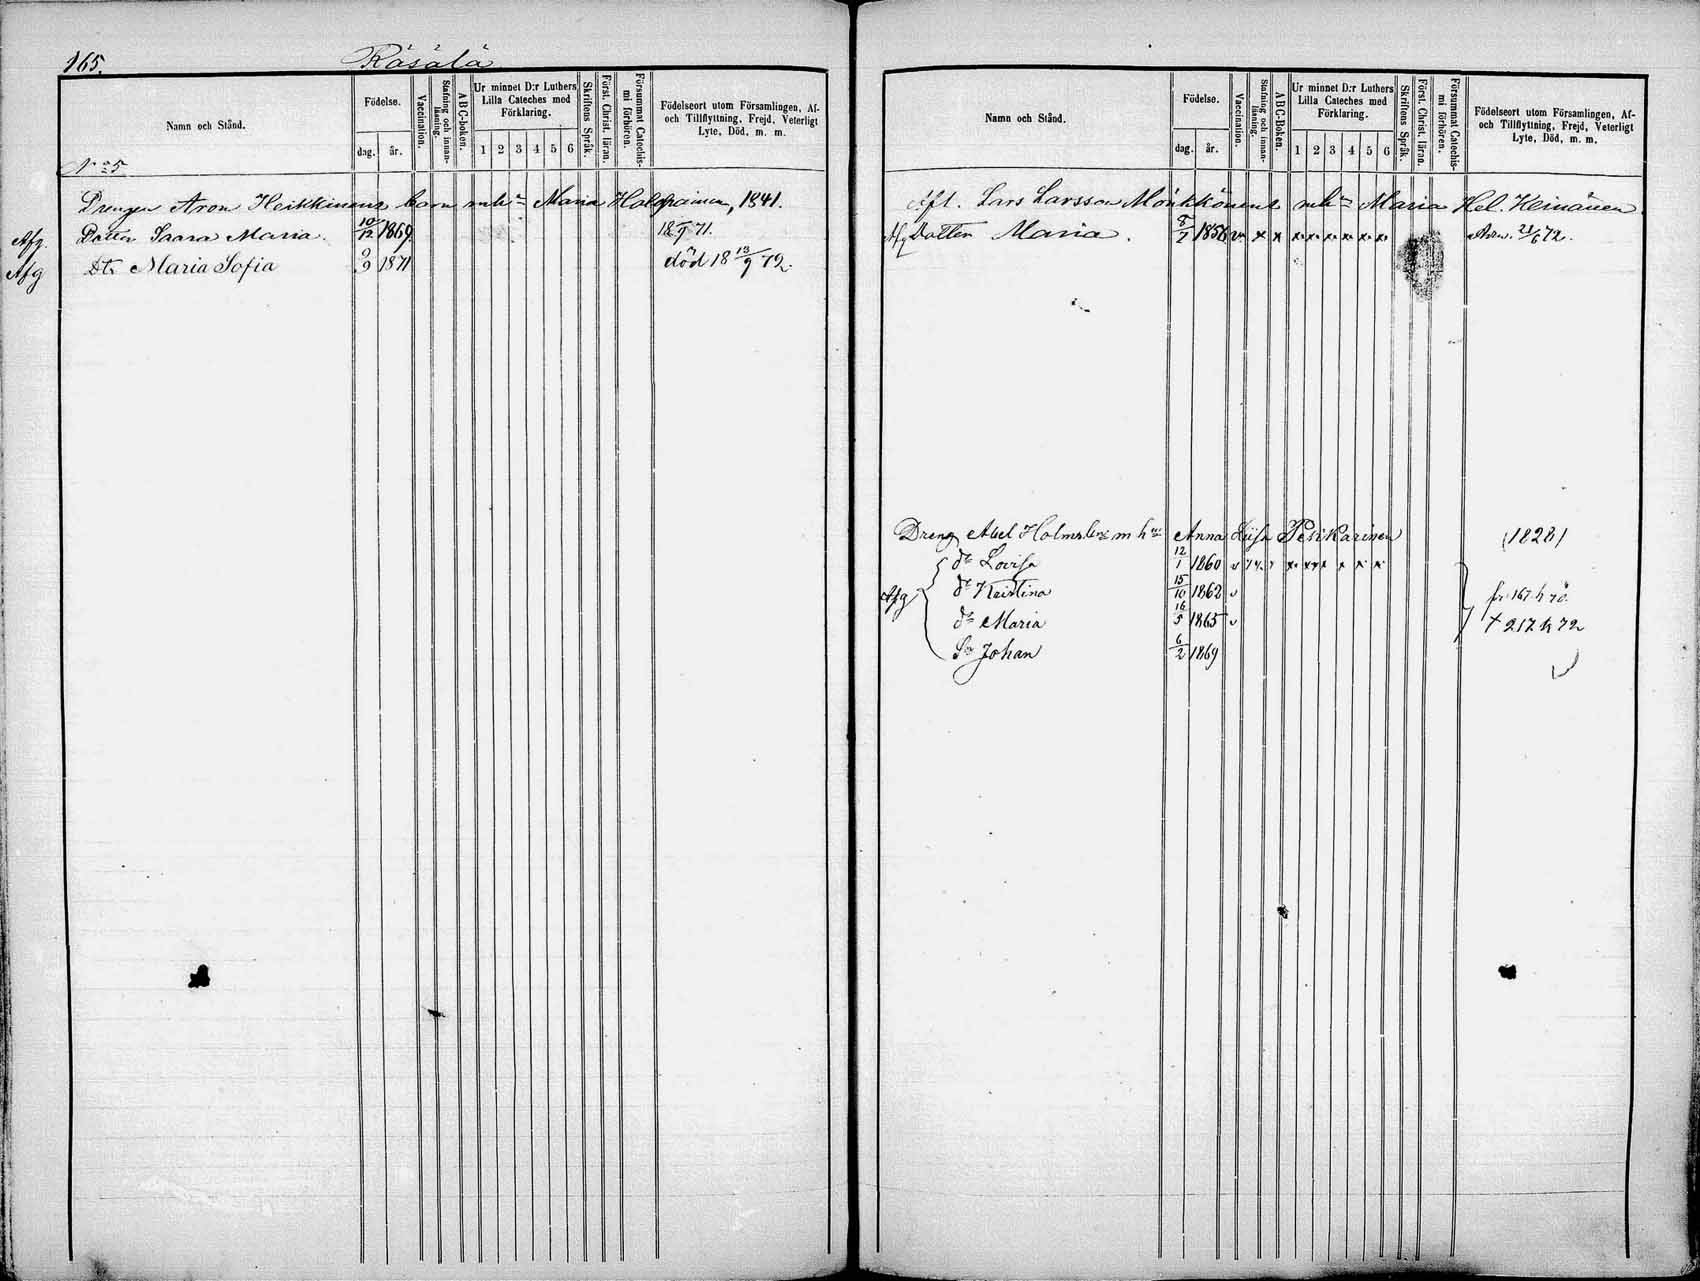 165. Räsälä
Namn och Stånd.
Födelse.
dag. år.
Vaccination.
Stafning och innan-läsning.
ABC-boken.
Ur minnet D:r Luthers Lilla Cateches med Förklaring.
1 2 3 4 5 6
Skriftens Språk.
Först. Christ. läran.
Försummat Catechis-mi förhören.
Födelseort utom Församlingen, Af-
och Tillflyttning, Frejd, Veterligt
Lyte, Död, m. m.
No 5
Drengen Aron Heikkinens barn mhu Maria Holopainen, 1841.
Afg. Dotter Saara Maria. 10/12 1869.
Afg Dtr Maria Sofia 9/9 1871 död 18 13/9 72.
Namn och Stånd.
Födelse.
dag. år.
Vaccination.
Stafning och innan-läsning.
ABC-Boken.
Ur minnet D:r Luthers Lilla Cateches med Förklaring.
1 2 3 4 5 6
Skriftens Språk.
Först. Christ. läran.
Försummat Catechis-mi förhören.
Födelseort utom Församlingen, Af-
och Tillflyttning, Frejd, Veterligt
Lyte, Död, m. m.
Afl. Lars Larsson Mönkkönens mhu Maria Hel. Heinänen.
Afg Dotter Maria. 1856 v x x x x x x x x 23/6 72.
Dreng Abel Holmsbergs m hu Anna Lisa Pesikarinen (1828)
dr Lovisa 12/1 1860
Afg dr Kristina 15/10 1862 v fr. 167. h 70.
dr Maria 16/5 1865 v + 217 h 72
Sn Johan 6/2 1869